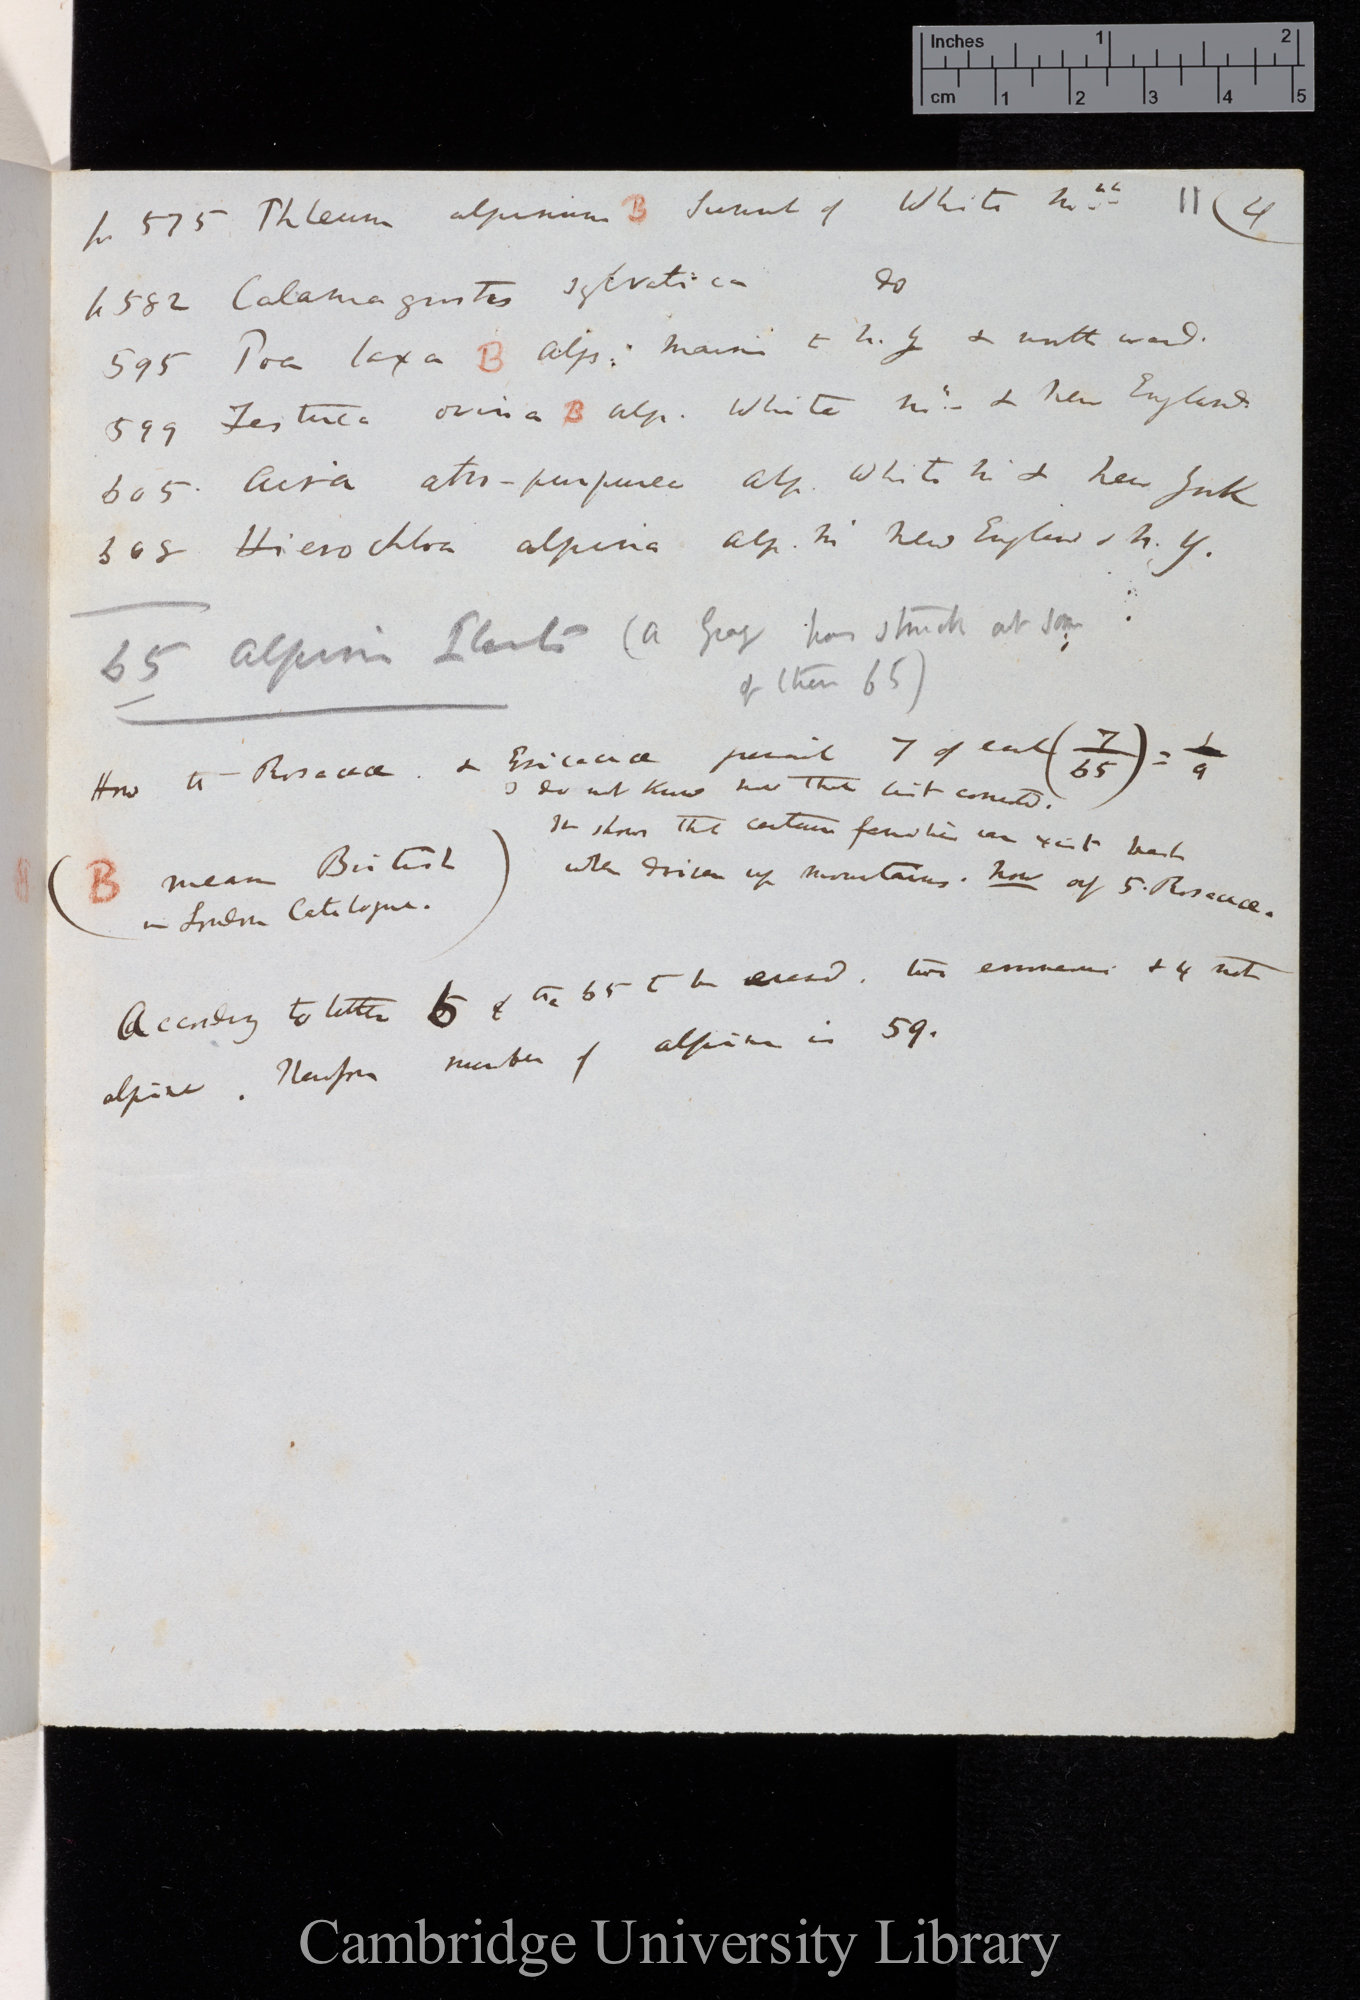 Inches 1 2
cm 1 2 3 4 5
p 575 Phleum alpinum B Summit of White Mts 11 (4
p 582 Calamagrostis sylvatica do
595 Poa laxa B alps: Maine & N. Y & northward.
599 Festuca ovina B alp. White Mts & New England
605. Aira atro-purpurea alp. White M & New York
608 Hierochloa alpina alp. M New England & N. Y.
65 alpine Plants (A Gray has struck out some
of them 65)
How the Rosaceæ & Ericaceæ prevail 7 of each (7/65) = 1/9
I do not know now that list corrected.
It shows that certain families can exist best
when driven up mountains. Now only 5. Rosaceæ.
(B means British
in London Catalogue.)
According to letter 6 of the 65 to be erased. two erroneous & 4 not
alpine. Therefore number of alpine is 59.
Cambridge University Library